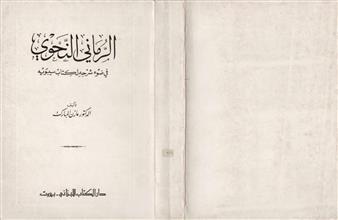 الرماني النحوي
في ضوء شرحه لكتاب سيبويه
تأليف
الدكتور مازن المبارك
دار الكتاب اللبناني - بيروت